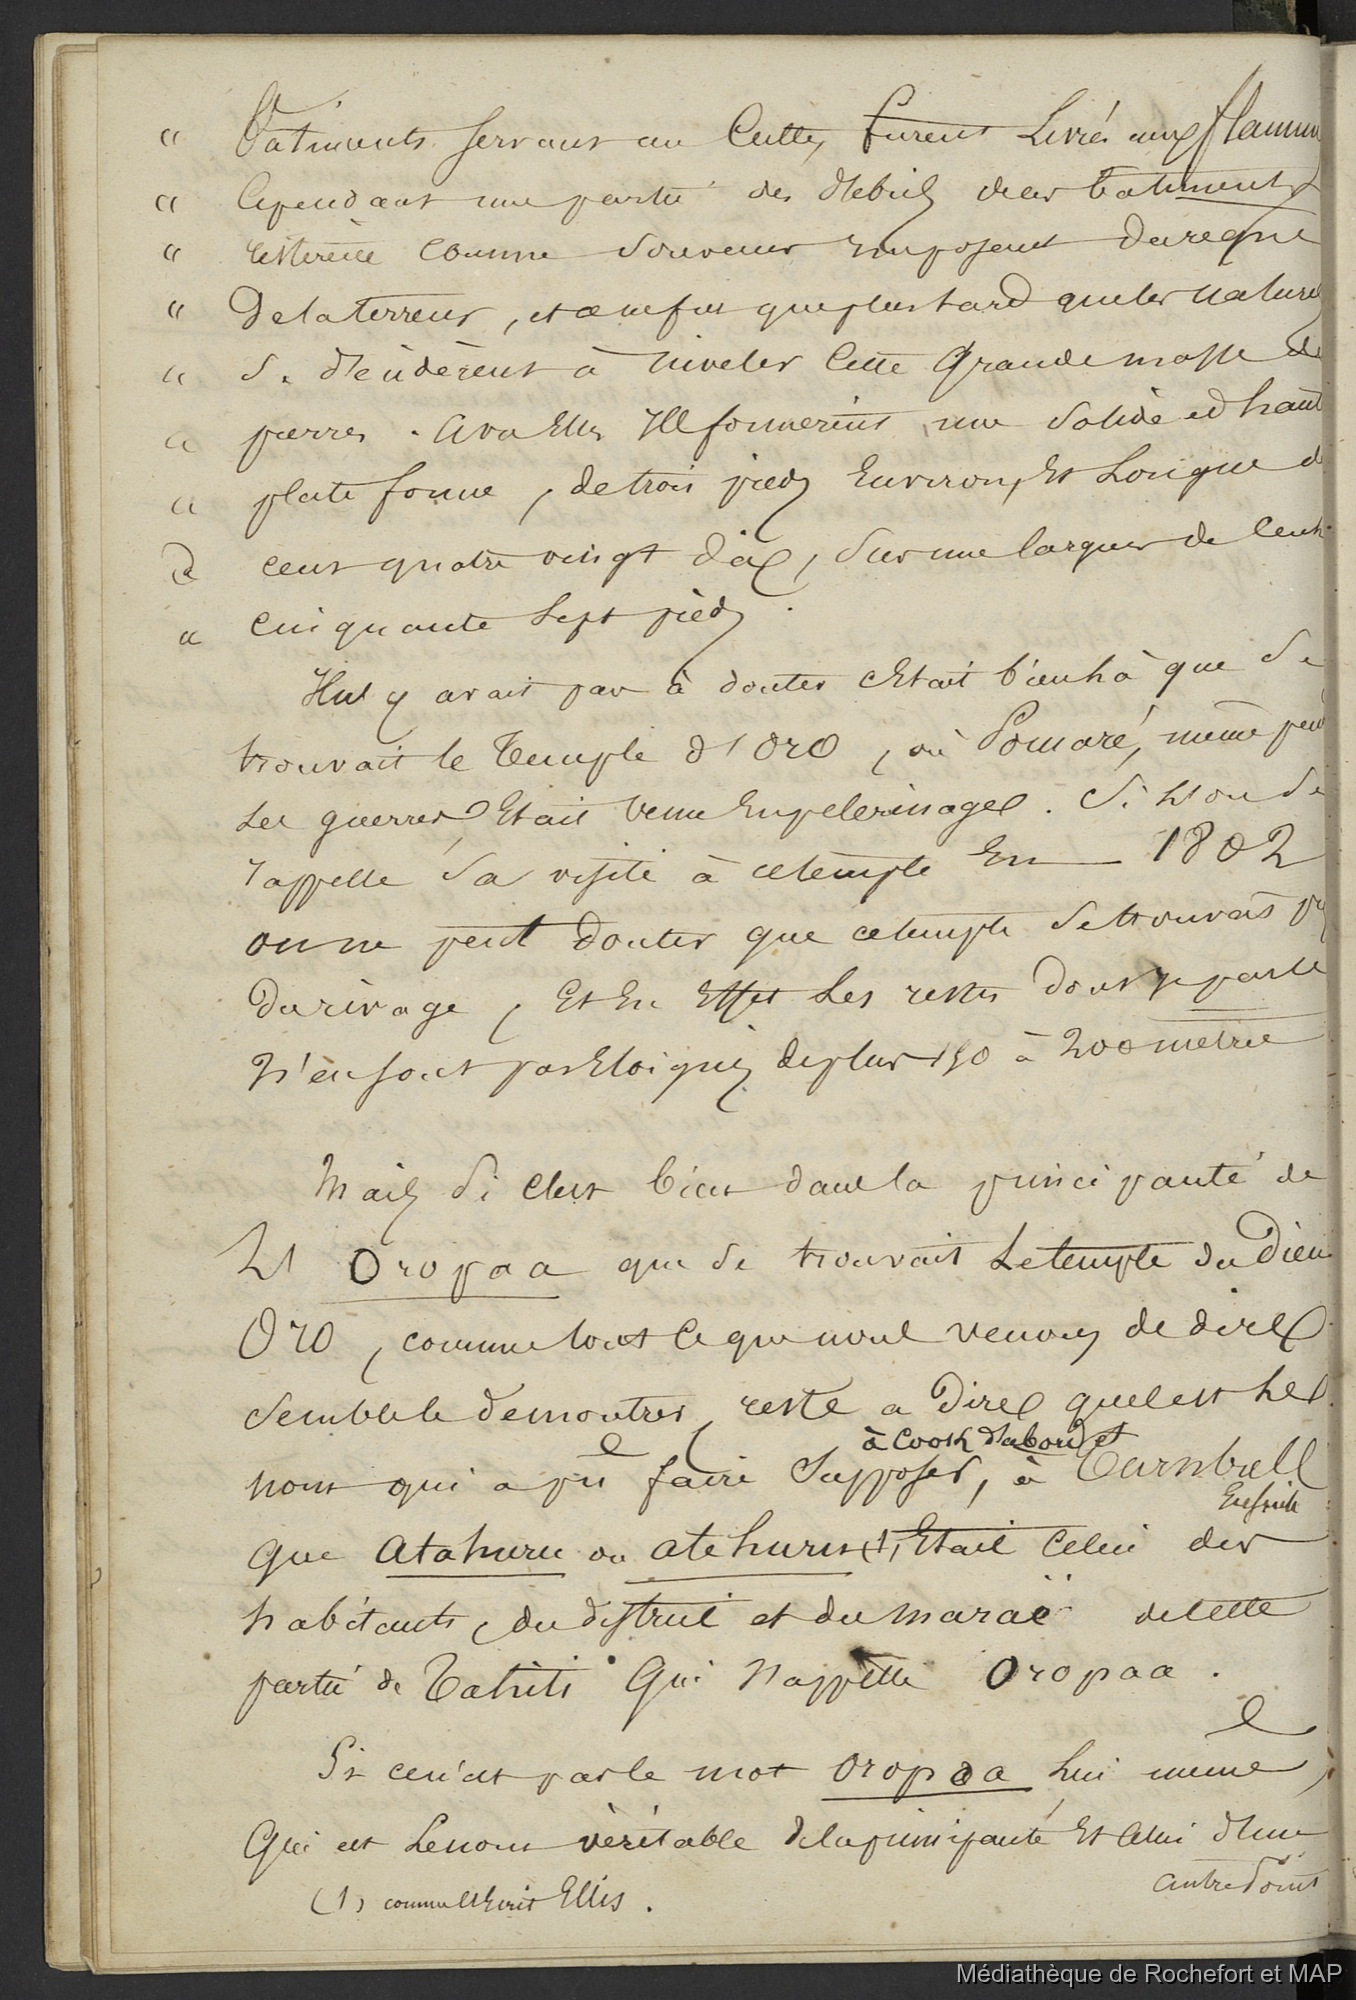 " Bâtiments servant au Culte, furent Livrés aux flammes
" Cependant une partie des débris de ces batiments
" restèrent comme souvenir imposent du règne
" De la terreur, et ce ne fut que plus tard que les naturels
" se décidèrent à niveler Cette Grande masse de
" pierres. Avec Elles Ils formèrent, une Solide et haute
" plate forme, de trois pieds Environ, Et Longue de
" cent quatre vingt dix, Sur une largeur de Cent
" Cinquante Sept pieds.
Il n'y avait pas à douter c'Etait bien là que se
trouvait le Temple d'Oro, où Pomaré, même pendt
Les guerres Etait Venu En pelerinage. Si L'on se
rappelle Sa visite à ce temple En 1802
on ne peut Douter que ce temple se trouvait près
Du rivage, Et En Effet Les restes dont je parle
N'en sont pas Eloignés de plus 150 à 200 mètres
Mais Si c'est bien dans la principauté de
L' Oropaa que se trouvait Le temple du Dieu
Oro, comme tout Ce que nous venons de dire
Semble le demontrer, reste a Dire quel est Le
à Cook d'abord et
nom qui a pu faire Supposer, à Turnbull
Ensuite
que Atahuru ou Atehuru (1) Etait Celui des
habitants, du district et du maraë de Cette
partie de Tahiti Qui s'appelle Oropaa.
Si ce n'est pas le mot Oropaa Lui même,
Qui est Le nom véritable de la principauté Et Celui d'une
autre dont
(1) comme l'Ecrit Ellis.
Médiathèque de Rochefort et MAP